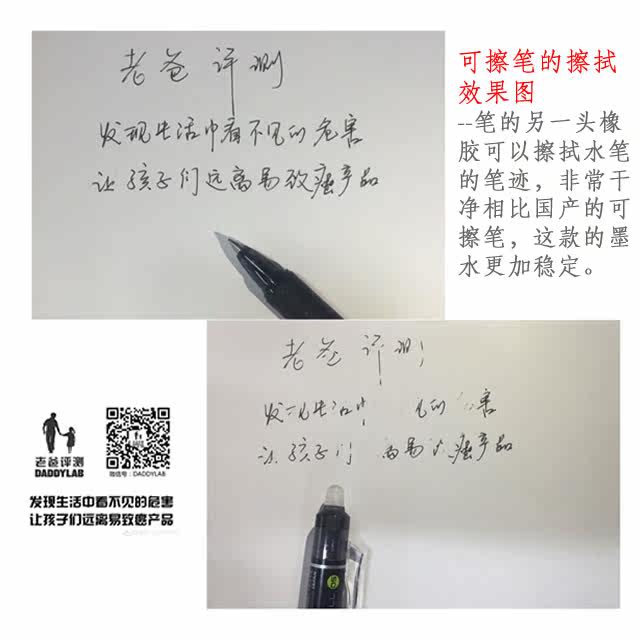 老爸评测
发现生活中看不见的危害
让孩子们远离易致癌产品
可擦笔的擦拭
效果图
--笔的另一头橡
胶可以擦拭水笔
的笔迹，非常干
净相比国产的可
擦笔，这款的墨
水更加稳定。
老爸评测
发现生活中 见的 害
孩子们 离易 癌产品
老爸评测
DADDYLAB
微信号：DADDYLAB
发现生活中看不见的危害
让孩子们远离易致癌产品